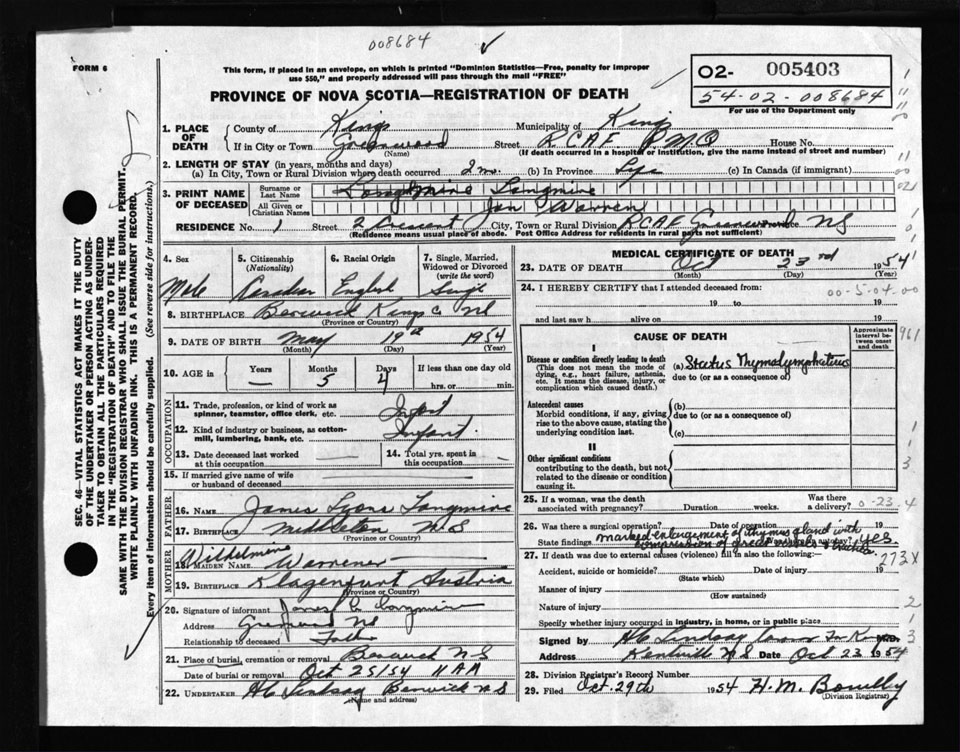 008684 ✓
FORM 6
This form, if placed in an envelope, on which is printed "Dominion Statistics—Free, penalty for improper
use $50," and properly addressed will pass through the mail "FREE"
PROVINCE OF NOVA SCOTIA—REGISTRATION OF DEATH
O2- 005403
54-02-008684
For use of the Department only
1. PLACE OF DEATH
County of Kings Municipality of Kings
If in City or Town Greenwood Street RCAF PMQ House No.
(Name) (If death occurred in a hospital or institution, give the name instead of street and number)
2. LENGTH OF STAY (in years, months and days)
(a) In City, Town or Rural Division where death occurred 2 m. (b) In Province Life (c) In Canada (if immigrant)
3. PRINT NAME OF DECEASED
Surname or Last Name Longmire Longmire
All Given or Christian Names Jan Warren
RESIDENCE No. 1 Street 2 Crescent City, Town or Rural Division RCAF Greenwood Province NS
(Residence means usual place of abode. Post Office Address for residents in rural parts not sufficient)
4. Sex
Male
5. Citizenship
(Nationality)
Canadian
6. Racial Origin
English
7. Single, Married,
Widowed or Divorced
(write the word)
Single
8. BIRTHPLACE Berwick Kings C NS
(Province or Country)
9. DATE OF BIRTH May 19th 1954
(Month) (Day) (Year)
10. AGE in
Years Months Days If less than one day old
— 5 4 hrs. or min.
OCCUPATION
11. Trade, profession, or kind of work as
spinner, teamster, office clerk, etc. Infant
12. Kind of industry or business, as cotton-
mill, lumbering, bank, etc. Infant
13. Date deceased last worked
at this occupation
14. Total yrs. spent in
this occupation
15. If married give name of wife
or husband of deceased
FATHER
16. Name James Lyons Longmire
17. Birthplace Middleton N.S
(Province or Country)
MOTHER
18. Maiden Name Warrener
19. Birthplace Klagenfurt Austria
(Province or Country)
20. Signature of informant James L Longmire
Address Greenwood NS
Relationship to deceased Father
21. Place of burial, cremation or removal Berwick NS
Date of burial or removal Oct 25/54
22. Undertaker Lindsay Berwick NS
(Name and address)
MEDICAL CERTIFICATE OF DEATH
23. DATE OF DEATH Oct 23rd 1954
(Month) (Day) (Year)
24. I HEREBY CERTIFY that I attended deceased from:
00-5-04-00
19 to 19
and last saw h alive on 19
CAUSE OF DEATH
Approximate
interval between
onset
and death
I
Disease or condition directly leading to death
(This does not mean the mode of
dying, e.g., heart failure, asthenia,
etc. It means the disease, injury, or
complication which caused death.)
(a) Status Thymolymphaticus
due to (or as a consequence of)
Antecedent causes
Morbid conditions, if any, giving
rise to the above cause, stating the
underlying condition last.
(b)
due to (or as a consequence of)
(c)
II
Other significant conditions
contributing to the death, but not
related to the disease or condition
causing it.
25. If a woman, was the death
associated with pregnancy? Duration weeks. Was there
a delivery?
0-23-4
26. Was there a surgical operation? Date of operation 19
State findings marked enlargement of thymus gland with
compression of great vessels & trachea autopsy? yes.
27. If death was due to external causes (violence) fill in also the following:
273X
Accident, suicide or homicide? Date of injury 19
(State which)
Manner of injury
(How sustained)
Nature of injury
Specify whether injury occurred in industry, in home, or in public place
Signed by Lindsay
Address Kentville N.S Date Oct 23 1954
28. Division Registrar's Record Number
29. Filed Oct. 29th 1954 H. M.
(Division Registrar)
SEC. 46—VITAL STATISTICS ACT MAKES IT THE DUTY
OF THE UNDERTAKER OR PERSON ACTING AS UNDER-
TAKER TO OBTAIN ALL THE PARTICULARS REQUIRED
IN THE "REGISTRATION OF DEATH" AND TO FILE THE
SAME WITH THE DIVISION REGISTRAR WHO SHALL ISSUE THE BURIAL PERMIT.
WRITE PLAINLY WITH UNFADING INK. THIS IS A PERMANENT RECORD.
Every item of information should be carefully supplied. (See reverse side for instructions.)